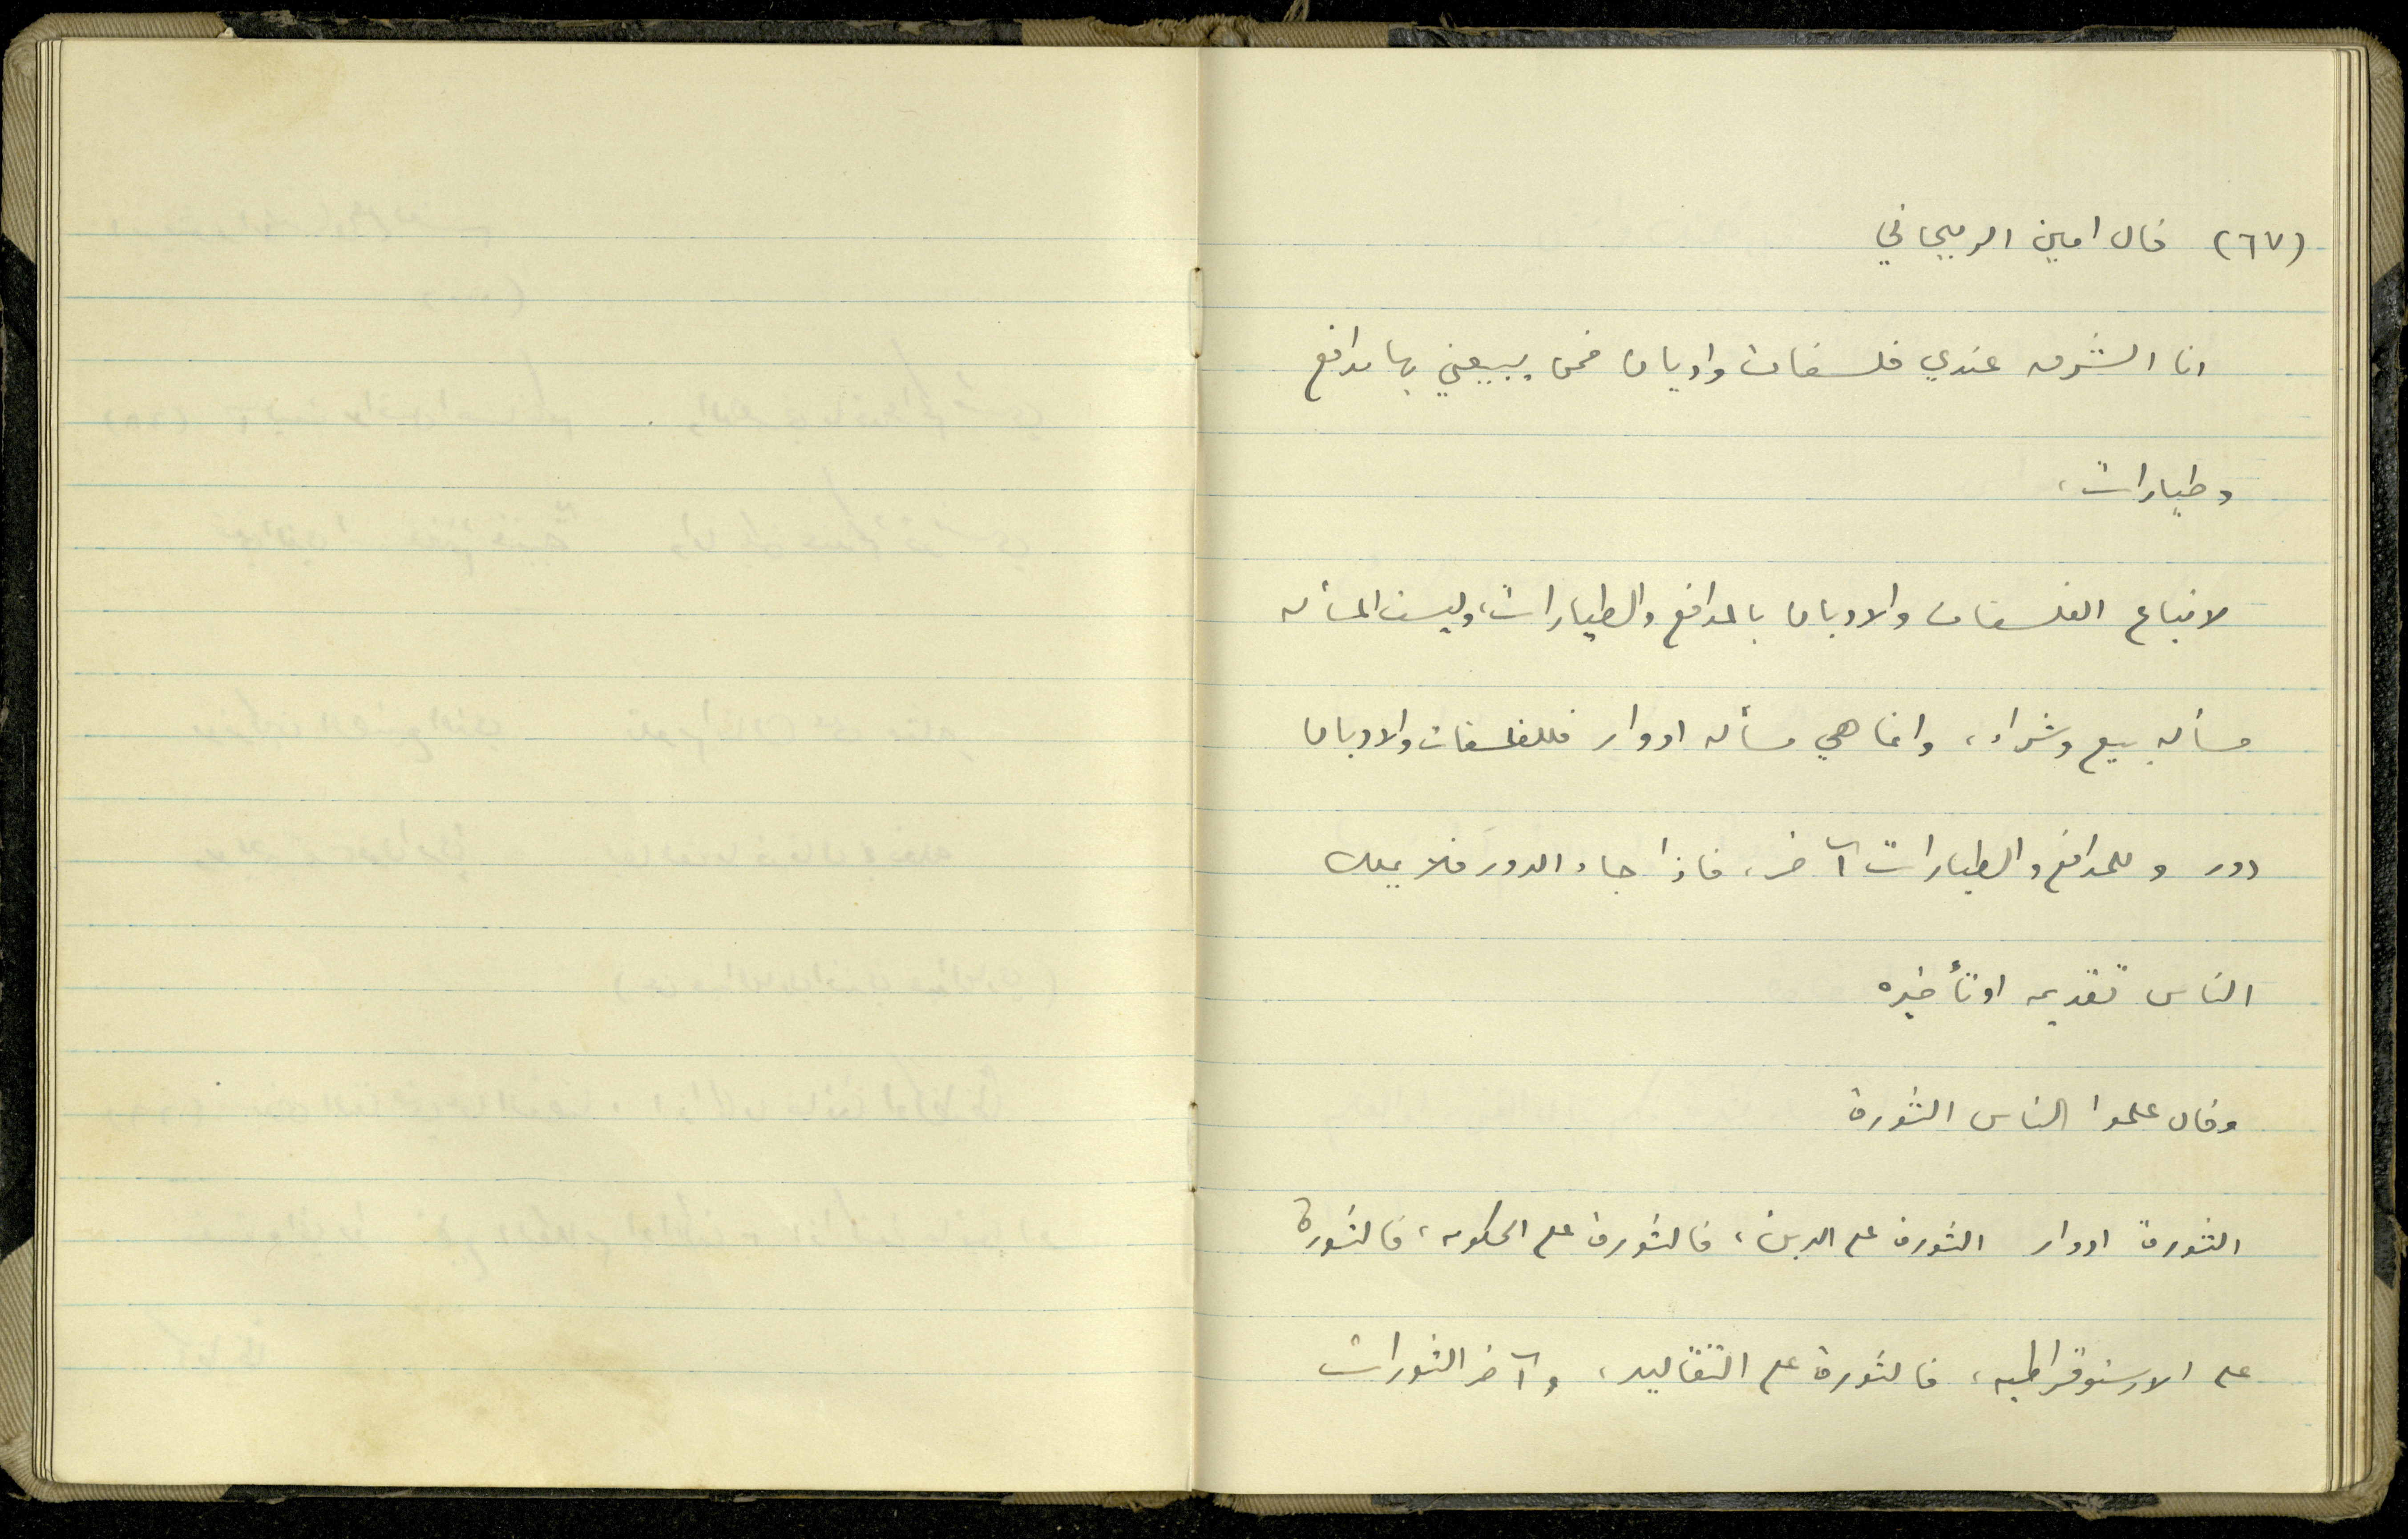 (٦٧) قال امين الريحاني
انا الشرق عندي فلسفات واديان فمن يبيعني بها مدافع
وطيارات،
لا تباع الفلسفات والاديان بالمدافع والطيارات، وليست المسأله
مسأله بيع وشراء، وانما هي مسأله ادوار فللفلسفات والاديان
دور وللمدافع والطيارات آخر، فاذا جاء الدور فلا يملك
الناس تقديمه او تأخيره
وقال علموا الناس الثورة
الثورة ادوار الثورة على الدين، فالثورة على الحكومه، فالثورة
على الارستوقراطيه، فالثورة على التقاليد، وآخر الثورات